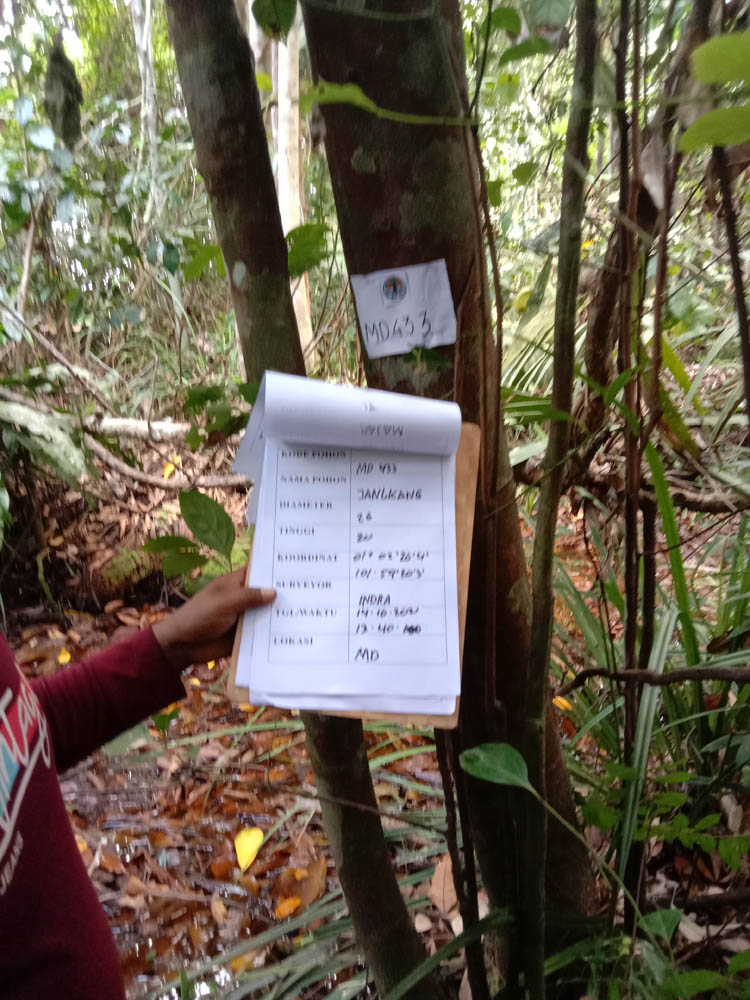 MD433
KODE POHON MD 433
NAMA POHON JANGKANG
DIAMETER 26
TINGGI 20
KOORDINAT 01° 02' 20.4'
101. 59'20'3'
SURVEYOR INDRA
TGL/WAKTU 14.10.2021
13.40.
LOKASI MD
JEANS